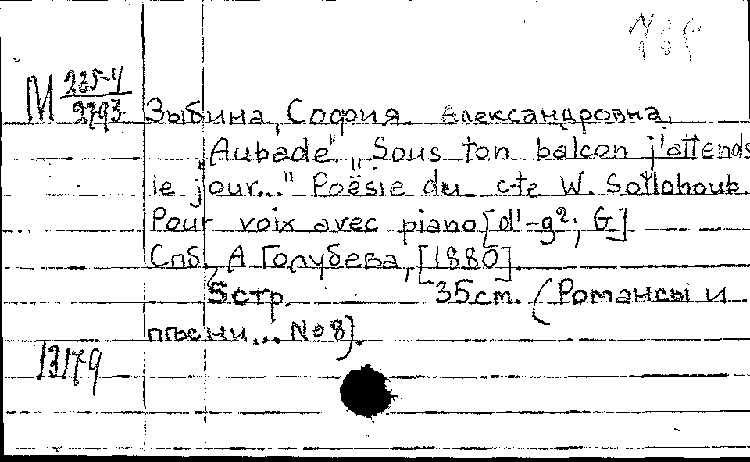 М 225-4
2793
Зыбина, София Александровна
„Aubade" „Sous ton balcon j'attends
le jour..." Poësie du c-te W. Sollohoub.
Pour voix avec piano [d¹-g²; G]
Спб, А Голубева, [1880]
5 стр. 35 cm. (Романсы и
песни... № 8).
13179